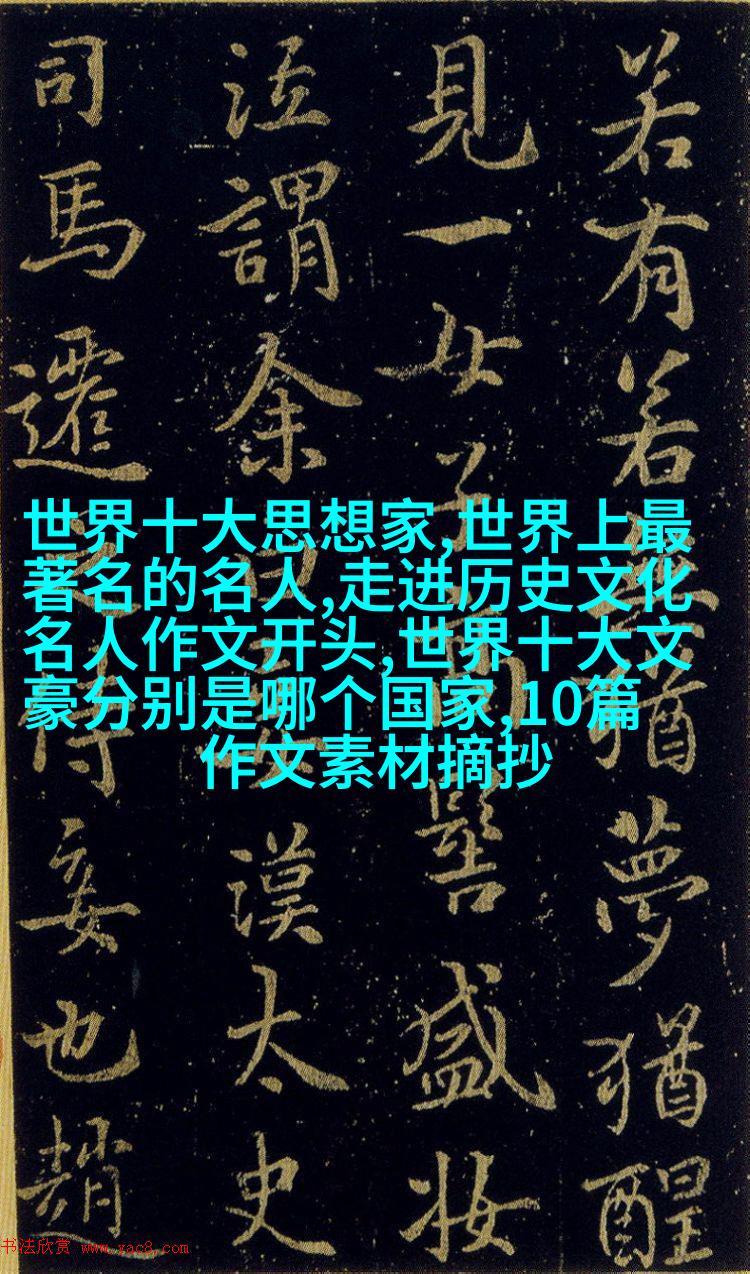 若有若無猶夢猶醒
見一女子髻盛妝
泣謂余曰妾漢太史
司馬遷之侍妾也趙
世界十大思想家,世界上最
著名的名人,走进历史文化
名人作文开头,世界十大文
豪分别是哪个国家,10篇
作文素材摘抄
书法欣赏 www.yac8.com